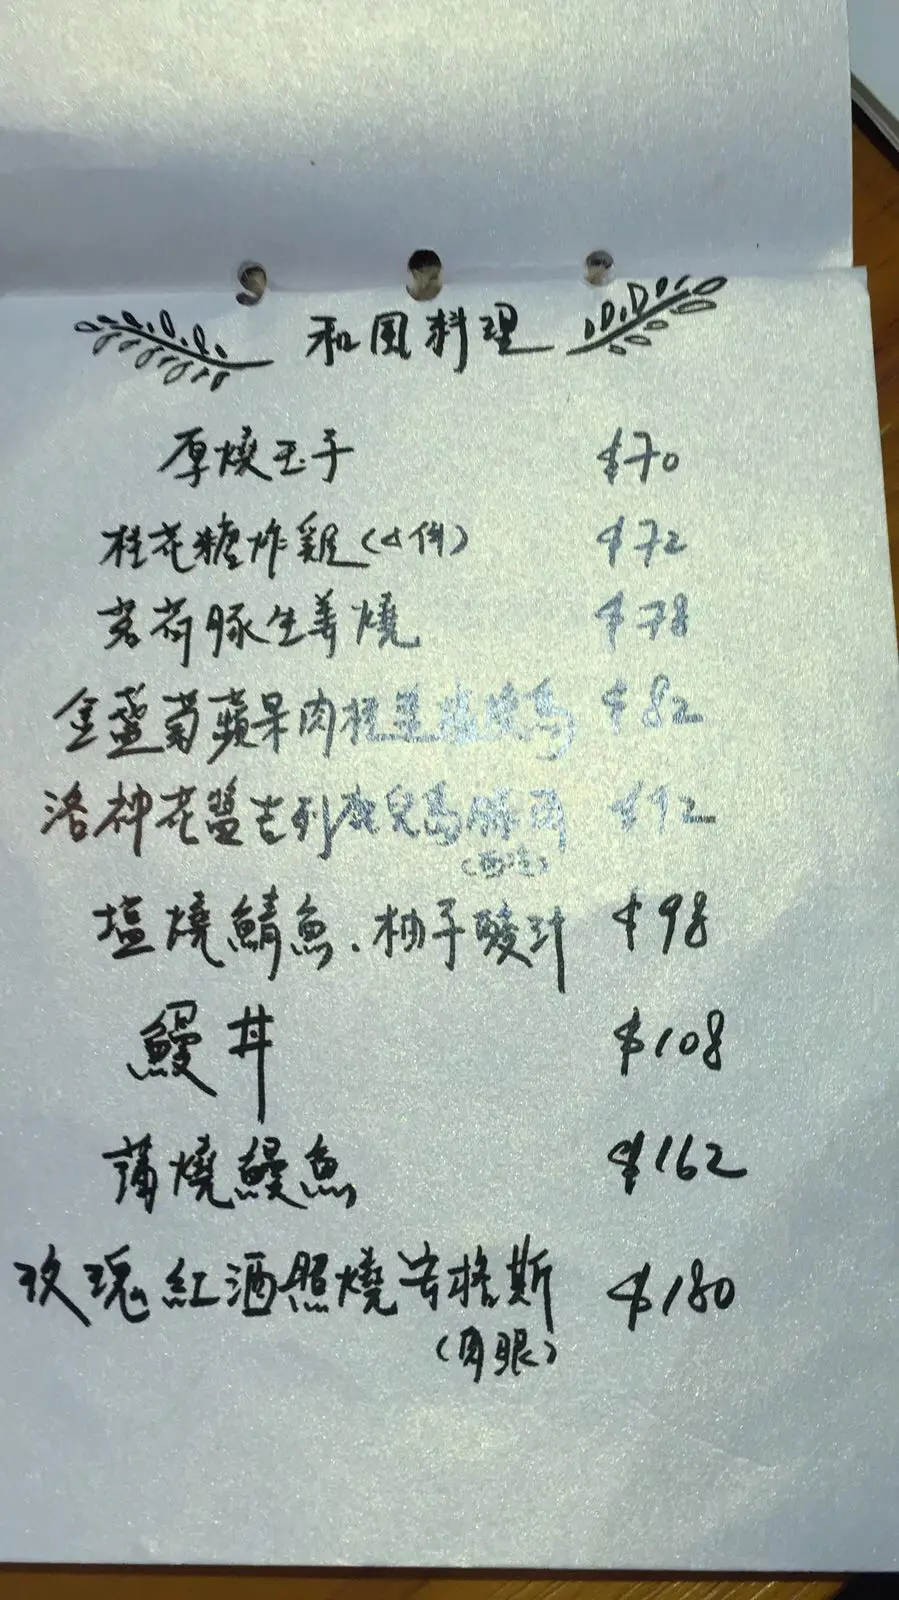 和風料理
厚燒玉子 $70
桂花糖炸雞(4件) $72
茗荷豚生姜燒 $78
金盞菊蘋果肉桂 $82
洛神花醬吉列鹿兒島豚肉 $92
塩燒鯖魚、柚子酸汁 $98
鰻丼 $108
蒲燒鰻魚 $162
玫瑰紅酒照燒安格斯 $180
(肉眼)